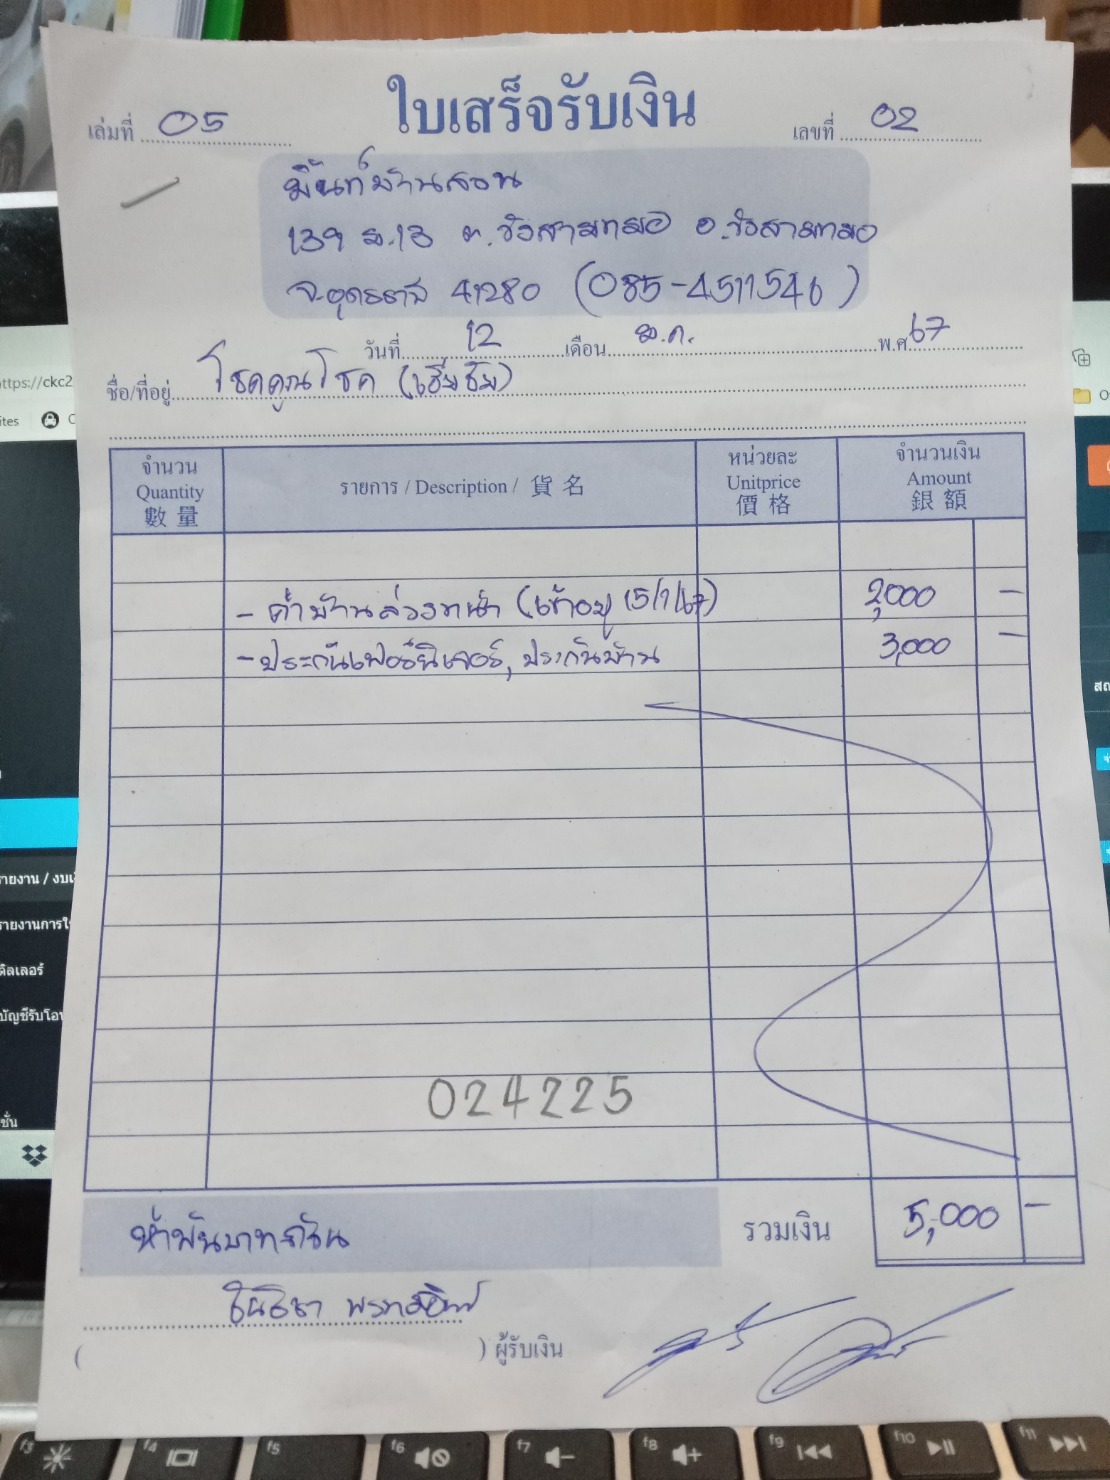 ใบเสร็จรับเงิน
เล่มที่ 05
เลขที่ 02
มิ้นท์บ้านสวน
139 ม.13 ต.วังสามหมอ อ.วังสามหมอ
จ.อุดรธานี 41280 (085-4511546)
วันที่ 12 เดือน ม.ค. พ.ศ. 67
ชื่อ/ที่อยู่ โชคคูณโชค (เชียงชิม)
จำนวน Quantity 數量
รายการ / Description / 貨名
หน่วยละ Unitprice 價格
จำนวนเงิน Amount 銀額
- ค่าบ้านล่วงหน้า (เข้าอยู่ 15/1/67) 2,000 -
- ประกันเฟอร์นิเจอร์, ประกันบ้าน 3,000 -
024225
ห้าพันบาทถ้วน
รวมเงิน 5,000 -
( ) ผู้รับเงิน
https://ckc2
ites
รายงาน / งบเ
รายงานการใ
ดิลเลอร์
บัญชีรับโอน
ชั่น
f3 f4 f5 f6 f7 f8 f9 f10 f11